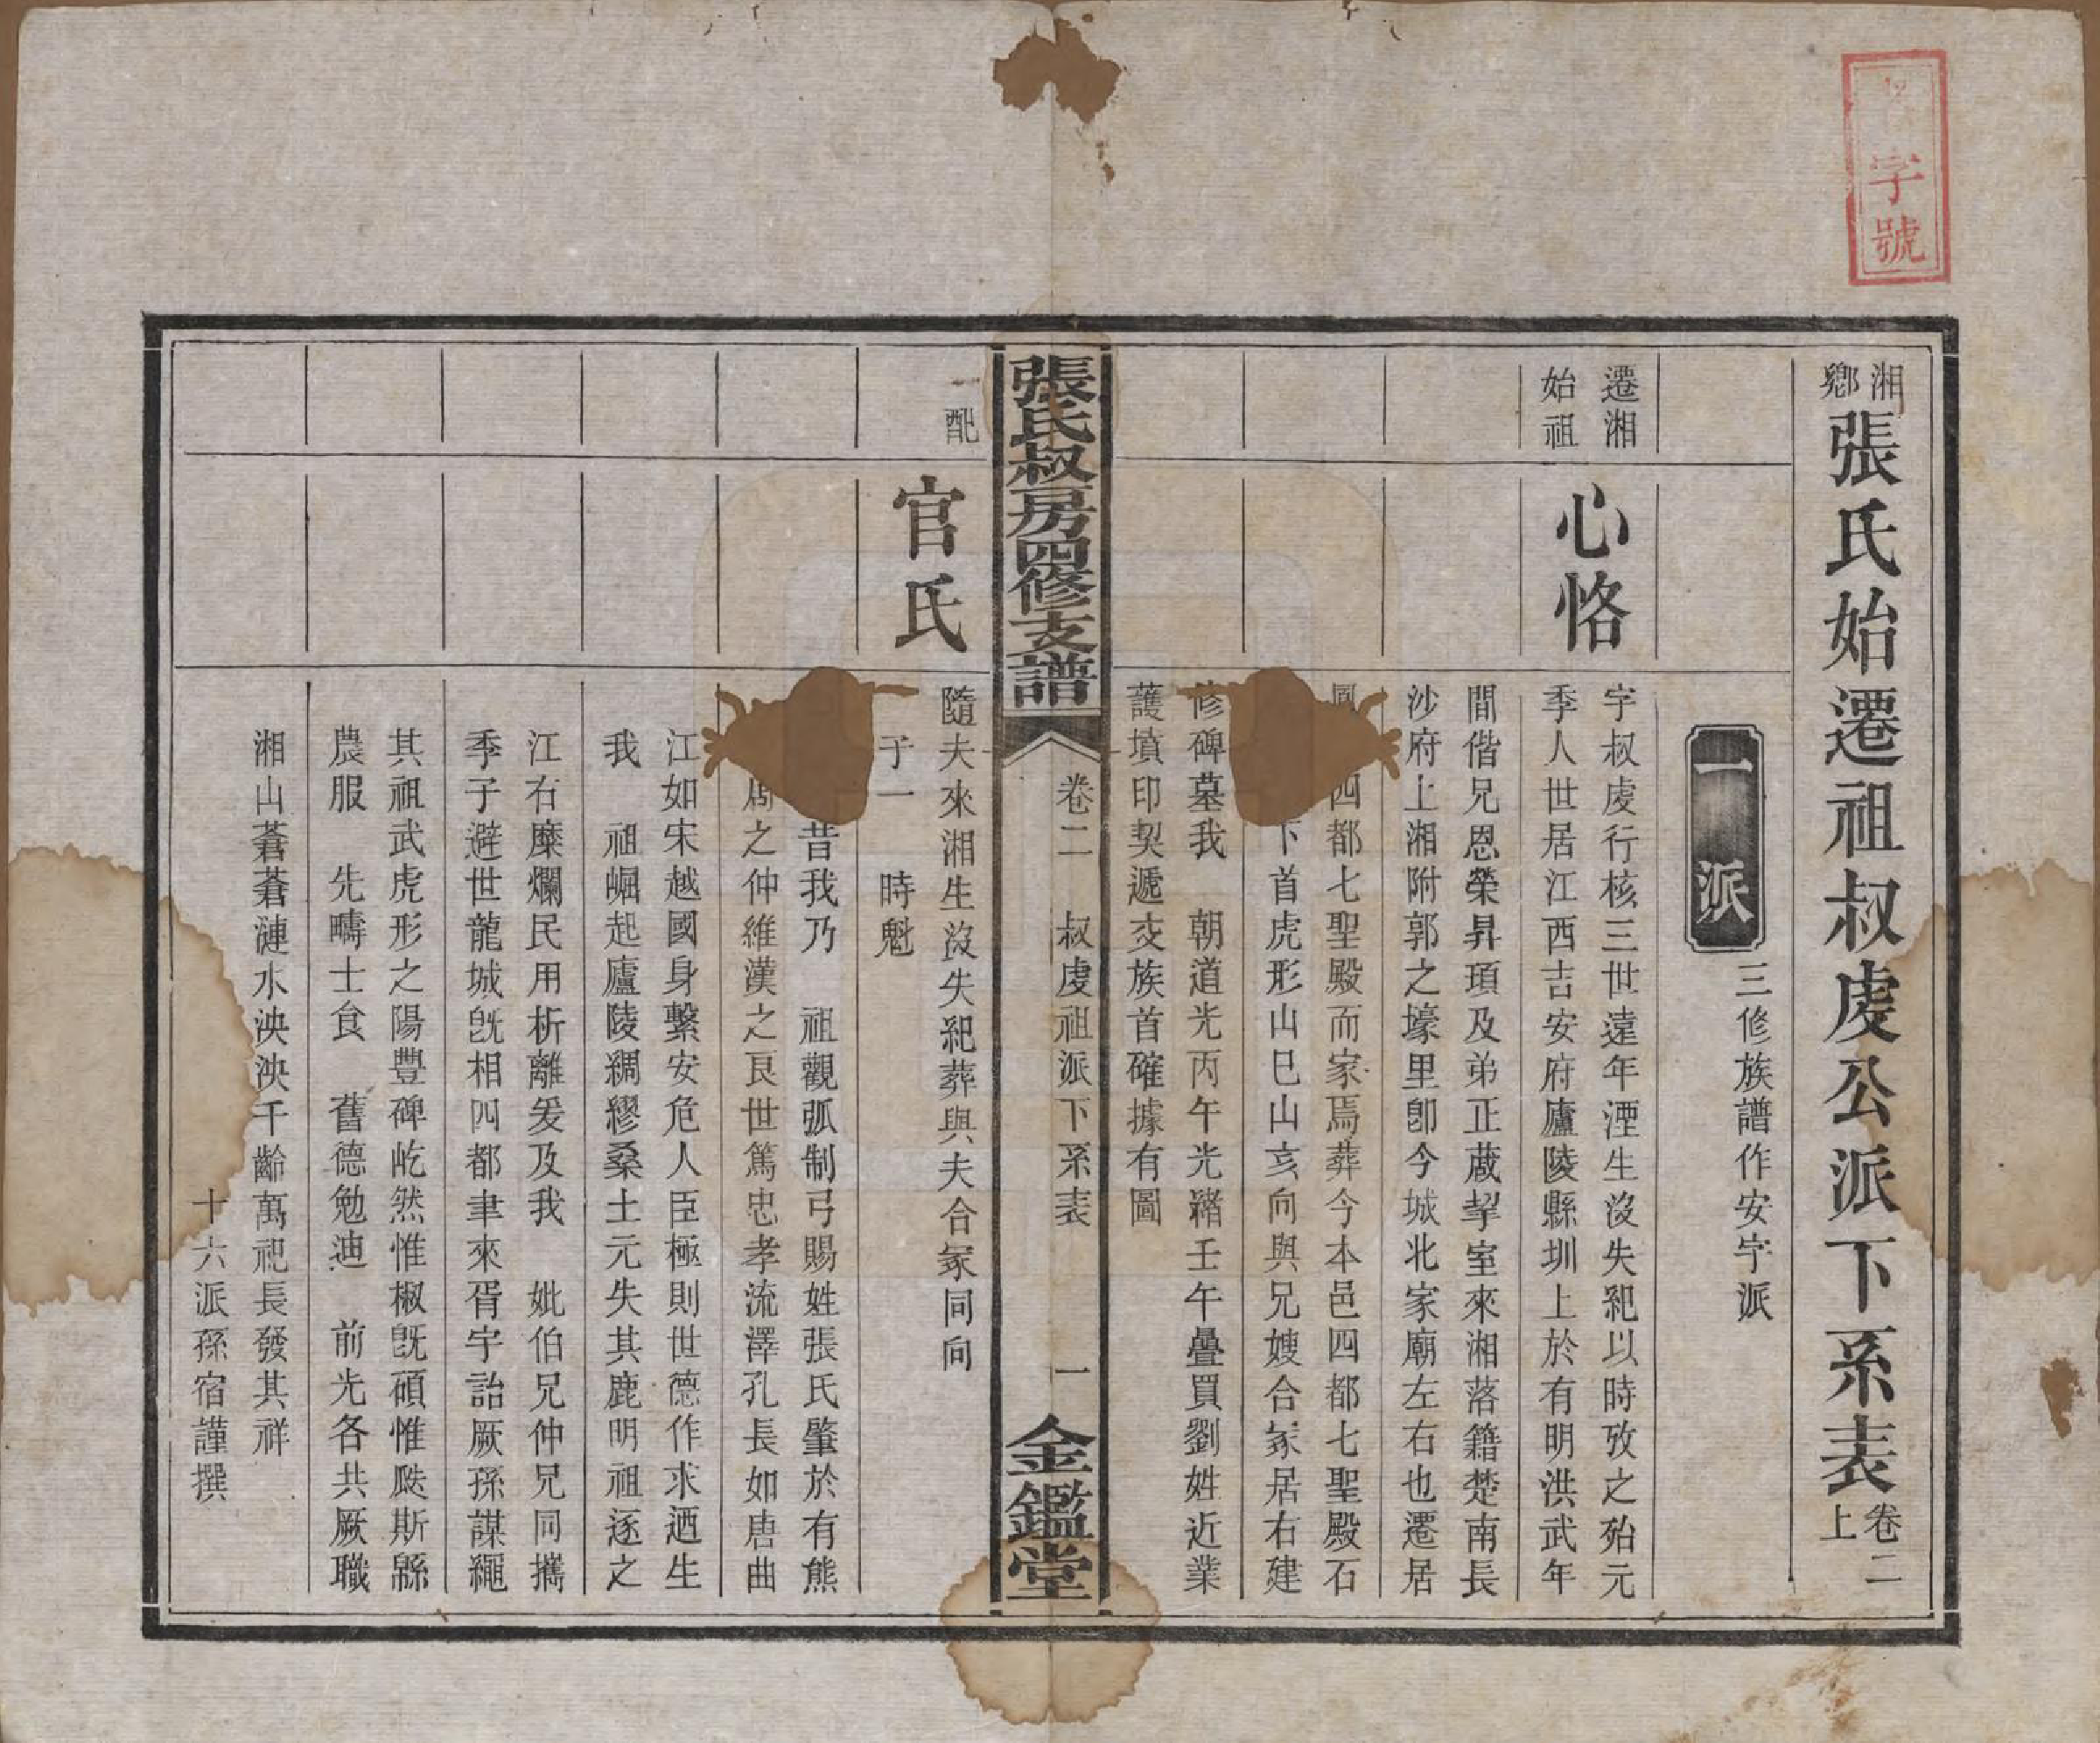 字號
湘鄉張氏始遷祖叔虔公派下系表卷二上
一派
三修族譜作安字派
遷湘始祖
心恪
字叔虔行核三世遠年湮生沒失紀以時攷之殆元
季人世居江西吉安府廬陵縣圳上於有明洪武年
間偕兄恩榮昇頊及弟正蕆挈室來湘落籍楚南長
沙府上湘附郭之壕里卽今城北家廟左右也遷居
四都七聖殿而家焉葬今本邑四都七聖殿石
下首虎形山巳山亥向與兄嫂合冢居右建
修碑墓我 朝道光丙午光緒壬午疊買劉姓近業
護墳印契遞交族首確據有圖
張氏叔房四修支譜
卷二 叔虔祖派下系表
一
金鑑堂
一配
官氏
隨夫來湘生沒失紀葬與夫合冢同向
子一 時魁
昔我乃 祖觀弧制弓賜姓張氏肇於有熊
周之仲維漢之良世篤忠孝流澤孔長如唐曲
江如宋越國身繫安危人臣極則世德作求迺生
我 祖崛起廬陵綢繆桑土元失其鹿明祖逐之
江右糜爛民用析離爰及我 妣伯兄仲兄同攜
季子避世龍城旣相四都聿來胥宇詒厥孫謀繩
其祖武虎形之陽豐碑屹然惟椒旣碩惟瓞斯緜
農服 先疇士食 舊德勉迪 前光各共厥職
湘山蒼蒼漣水泱泱千齡萬祀長發其祥
十六派孫宿謹撰